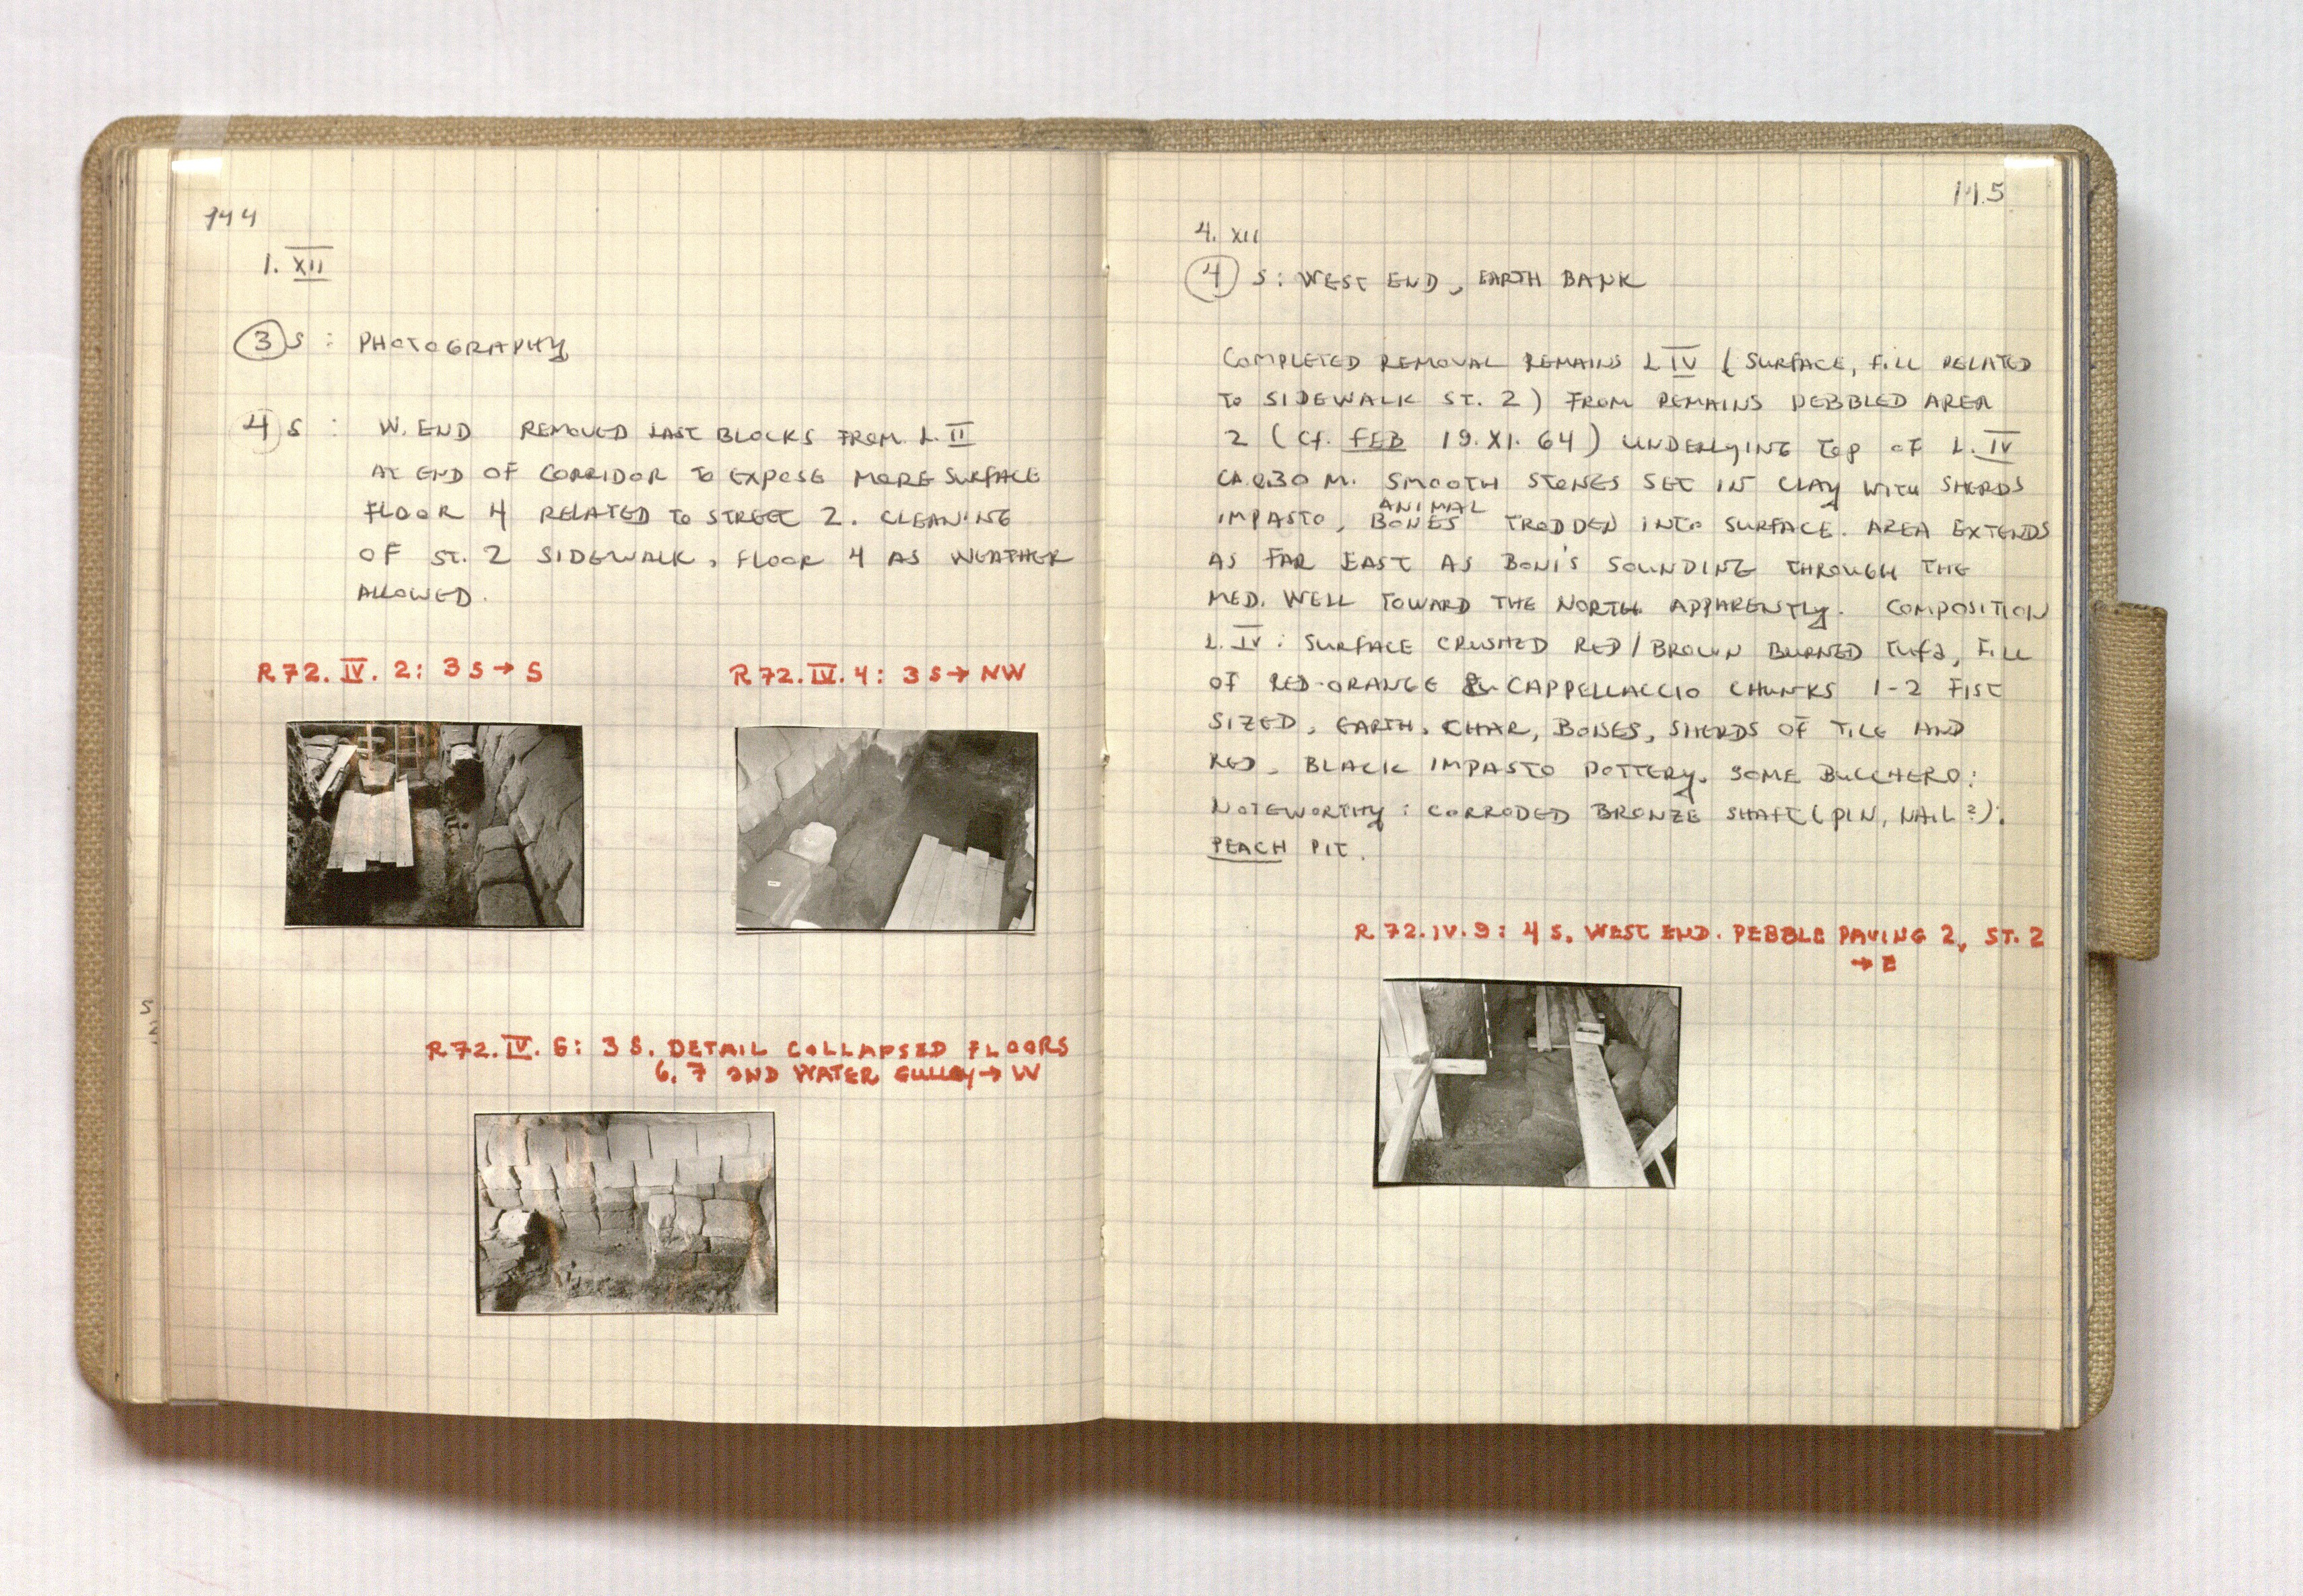 144
1. XII
3 S : PHOTOGRAPHY
4 S : W. END REMOVED LAST BLOCKS FROM L. II
AT END OF CORRIDOR TO EXPOSE MORE SURFACE
FLOOR 4 RELATED TO STREET 2. CLEANING
OF ST. 2 SIDEWALK, FLOOR 4 AS WEATHER
ALLOWED.
R72.IV.2: 3S→S
R72.IV.4: 3S→NW
R72.IV.6: 3S. DETAIL COLLAPSED FLOORS
6, 7 AND WATER GULLEY→W
S
2
145
4. XII
4 S: WEST END, EARTH BANK
COMPLETED REMOVAL REMAINS L IV (SURFACE, FILL RELATED
TO SIDEWALK ST. 2) FROM REMAINS PEBBLED AREA
2 (Cf. FEB 19.XI.64) UNDERLYING TOP OF L. IV
CA. 0.30 M. SMOOTH STONES SET IN CLAY WITH SHERDS
IMPASTO, ANIMAL BONES TRODDEN INTO SURFACE. AREA EXTENDS
AS FAR EAST AS BONI'S SOUNDING THROUGH THE
MED. WELL TOWARD THE NORTH APPARENTLY. COMPOSITION
L. IV: SURFACE CRUSHED RED/BROWN BURNED TUFA, FILL
OF RED-ORANGE CAPPELLACCIO CHUNKS 1-2 FIST
SIZED, EARTH, CHAR, BONES, SHERDS OF TILE AND
RED, BLACK IMPASTO POTTERY, SOME BUCCHERO:
NOTEWORTHY: CORRODED BRONZE SHAFT (PIN, NAIL?);
PEACH PIT.
R72.IV.9: 4S. WEST END. PEBBLE PAVING 2, ST. 2
→E